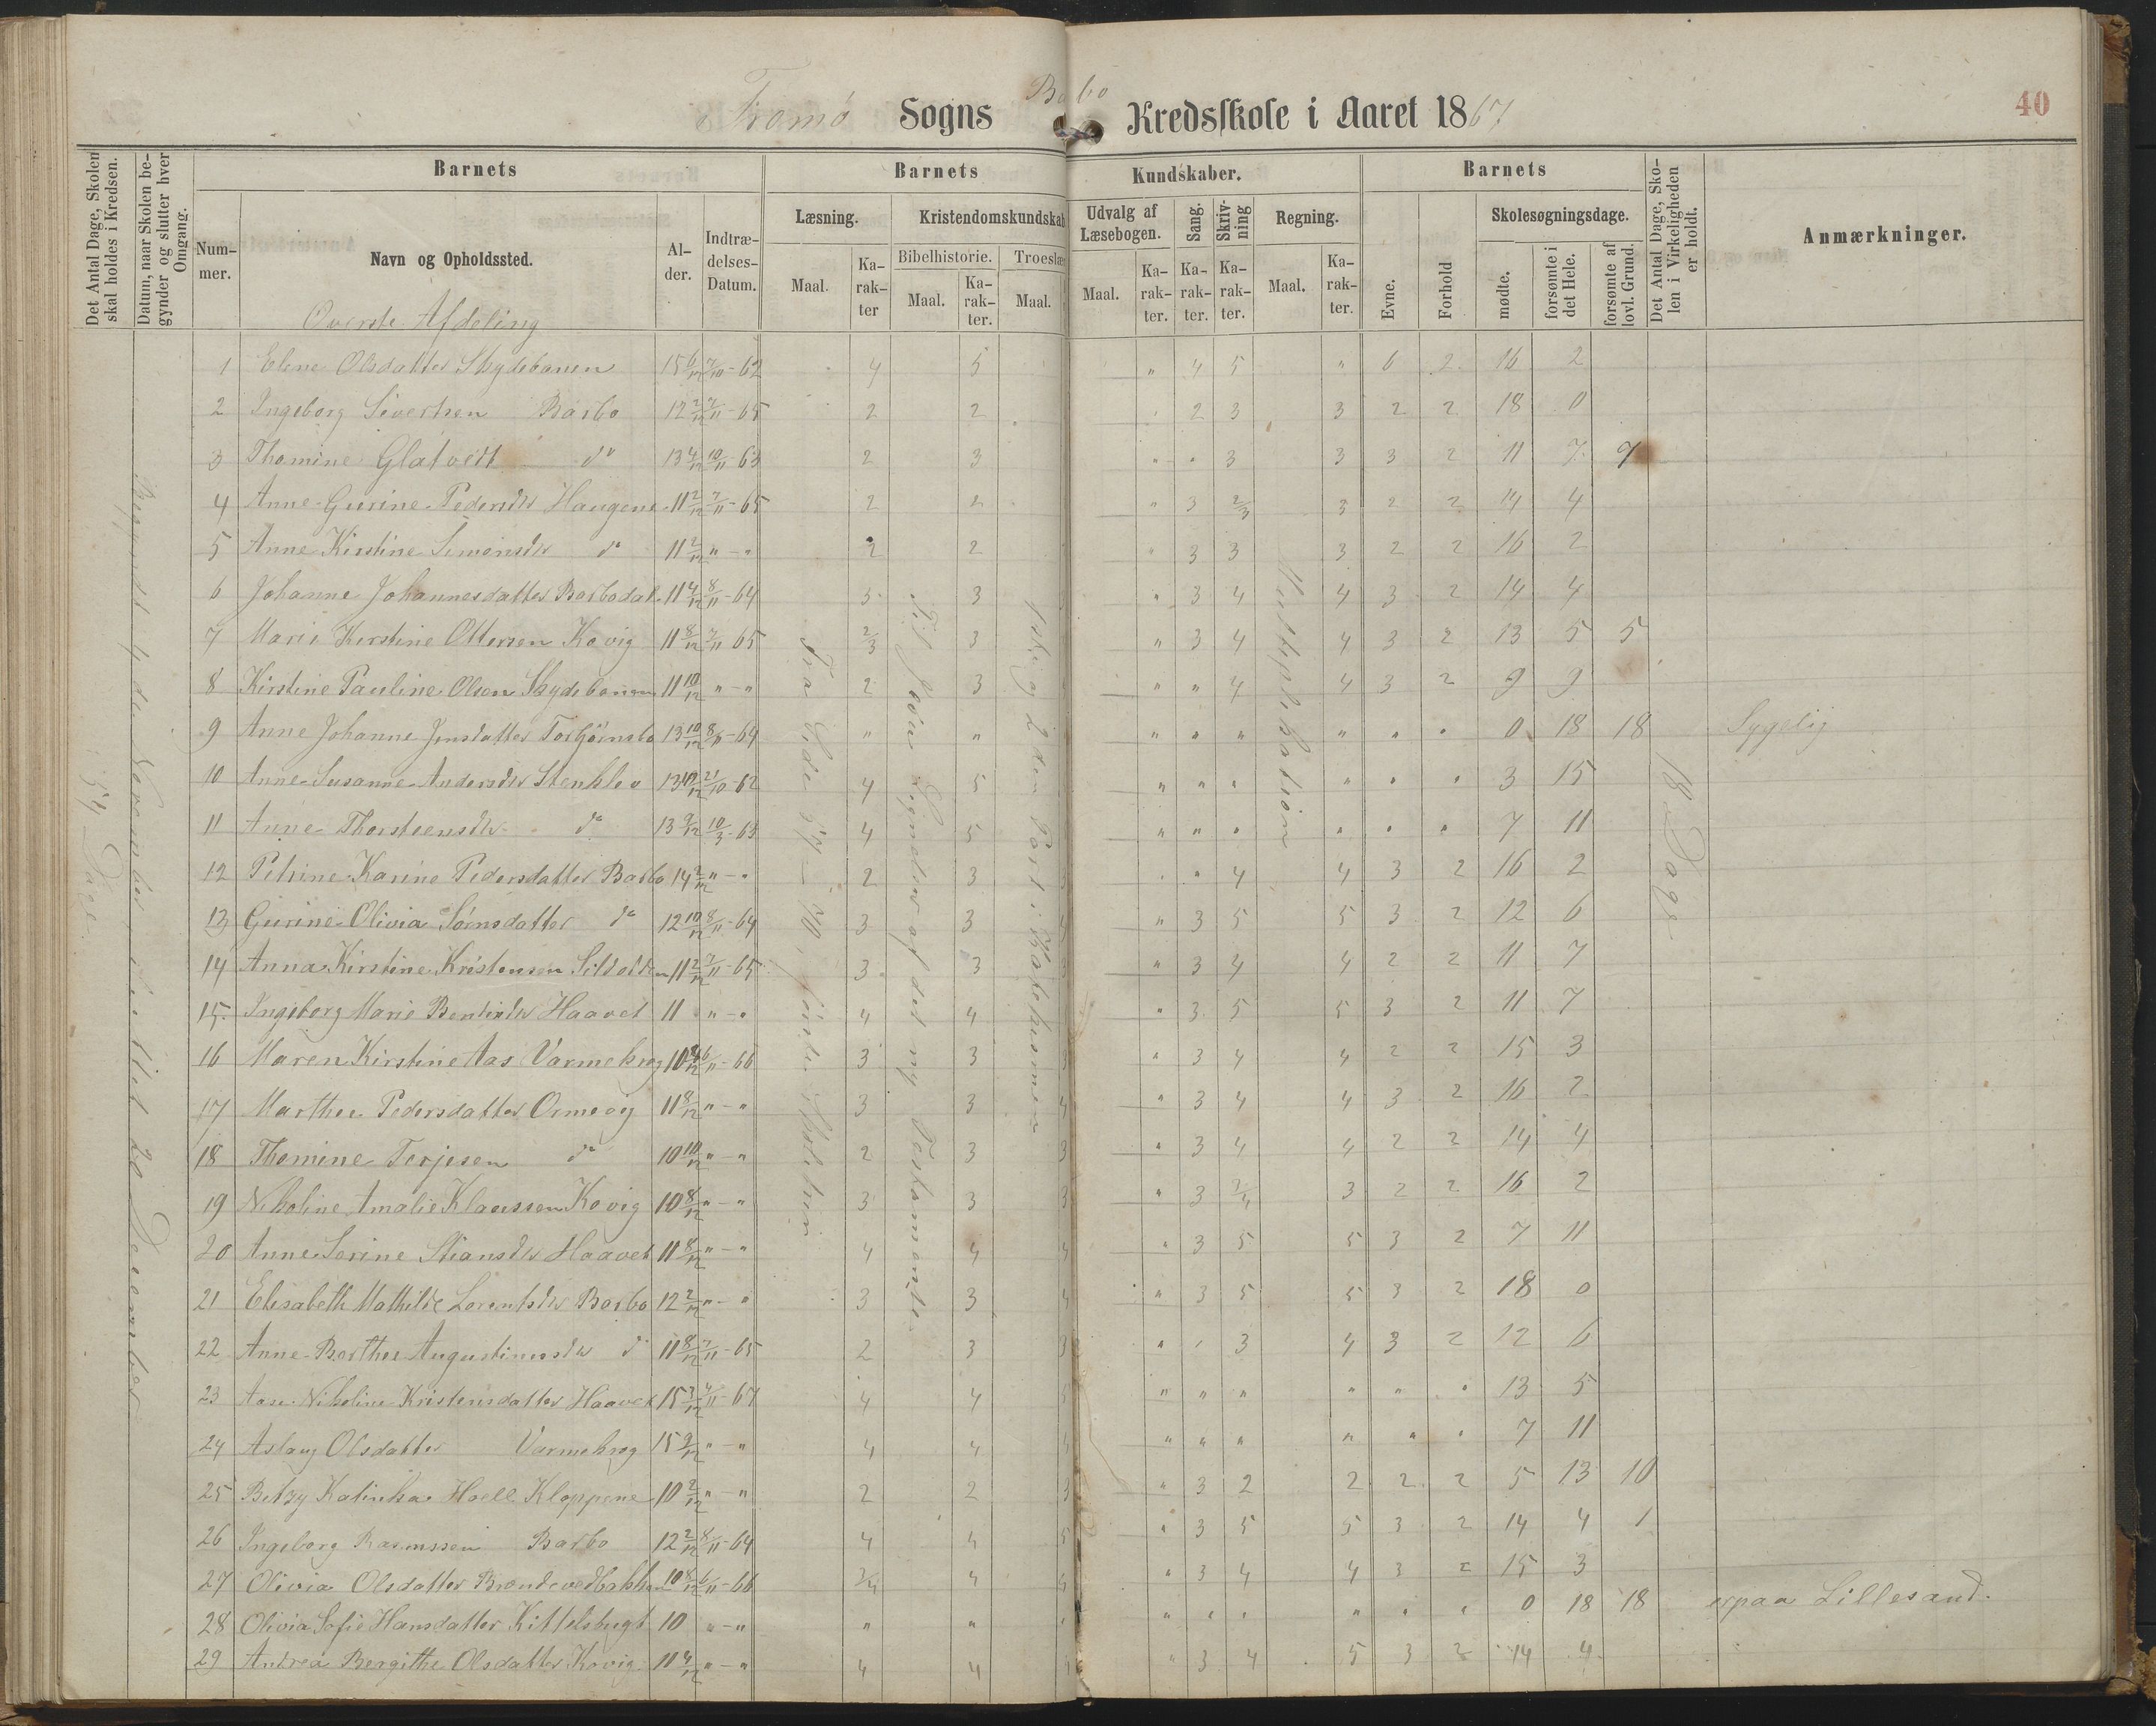 Tromø Sogns Barbo Kredsskole i Aaret 1867
40
Det Antal Dage, Skolen skal holdes i Kredsen.
Datum, naar Skolen begynder og slutter hver Omgang.
Barnets
Nummer.
Navn og Opholdssted.
Alder.
Indtrædelses-Datum.
Barnets Kundskaber.
Læsning.
Maal.
Karakter
Kristendomskundskab
Bibelhistorie.
Maal.
Karakter.
Troeslæ
Maal.
Udvalg af Læsebogen.
Maal.
Karakter.
Sang.
Karakter.
Skrivning
Karakter.
Regning.
Maal.
Karakter.
Barnets
Evne.
Forhold
Skolesøgningsdage.
mødte.
forsømte i det Hele.
forsømte af lovl. Grund.
Det Antal Dage, Skolen i Virkeligheden er holdt.
Anmærkninger.
Øverste Afdeling
1 Elene Olsdatter Skydebanen 15 6/12 7/10-62 4 5 " 4 5 " 6 2 16 2
2 Ingeborg Sivertsen Barbo 12 2/12 7/11-65 2 2 2 3 3 2 2 18 0
3 Thomine Glatvedt do 13 4/12 10/11-63 2 3 " " 3 3 3 2 11 7 7
4 Anne Gurine Pedersdtr Haugene 11 2/12 7/11-65 2 2 " 3 2/3 3 2 2 14 4
5 Anne Kirstine Simonsdtr do 11 2/12 "-" 2 2 " 3 3 3 2 2 16 2
6 Johanne Johannesdatter Barbodal 11 4/12 8/11-64 3 3 " 3 4 4 3 2 14 4
7 Marie Kirstine Ottersen Kovig 11 8/12 7/11 65 2/3 3 " 3 4 4 3 2 13 5 5
8 Kirstine Pauline Olsen Skydebanen 11 10/12 "-" 2 3 " " 4 4 3 2 9 9
9 Anne Johanne Jensdatter Torbjörnsbo 13 10/12 8/11-64 " " " " " " " " 0 18 18 Sygelig
10 Anne Susanne Andersdtr Stenklev 13 10/12 21/10-62 4 5 " " " " " " 3 15
11 Anne Thorsteensdtr do 13 9/12 10/3-63 4 5 " " " " " " 7 11
12 Petrine Karine Pedersdatter Barbo 14 2/12 "-" 2 3 " " 4 4 3 2 16 2
13 Gurine Olivia Sørnsdatter do 12 10/12 8/11-64 3 3 " 3 5 5 3 2 12 6
14 Anna Kirstine Kristensen 11 2/12 7/11-65 3 3 " 3 4 4 2 2 11 7
15 Ingeborg Marie Haavet 11 "-" 4 4 " 3 5 5 3 2 11 7
16 Maren Kirstine Aas Varmekrog 10 6/11-66 3 3 " 3 4 4 2 2 15 3
17 Marthee Pedersdatter Ormevig 11 8/12 "-" 3 3 " 3 4 4 3 2 16 2
18 Thomine Terjesen do 10 10/12 "-" 2 3 3 " 3 4 4 2 2 14 4
19 Nikoline Amalie Klaussen Kovig 10 8/12 "-" 3 3 3 " 3 3/4 3 2 2 16 2
20 Anne Serine Stiansdtr Haavet 11 8/12 "-" 4 4 4 " 3 5 5 3 2 7 11
21 Elisabeth Mathilde Lorentsdtr Barbo 12 2/12 "-" 3 3 4 " 3 5 5 3 2 18 0
22 Anne Barthee Augustinusdtr do 11 8/12 7/11-65 2 3 3 " " 3 4 3 2 12 6
23 Aase Nikoline Kristensdatter Haavet 15 4/11-67 4 4 " " " " " " 13 5
24 Aslaug Olsdatter Varmekrog 15 9/12 "-" 4 4 " " " " " " 7 11
25 Betzy Katinka Hoell Kloppene 10 2/12 "-" 2 2 3 " 3 2 2 2 2 5 13 10
26 Ingeborg Rasmussen Barbo 12 2/12 8/11-64 4 4 5 " 3 5 5 3 2 14 4 1
27 Olivia Olsdatter 10 8/12 6/11-66 3/4 4 4 " 3 4 4 3 2 15 3
28 Olivia Sofie Hansdatter Kittelsbugt 10 "-" " " " " " " " " 0 18 18 erpaa Lillesand.
29 Andrea Bergithe Olsdatter Kovig 11 4/12 "-" 4 4 " 3 4 5 3 2 14 4
54 Dage.
Begyndt 4de November sluttet 20 December
Fra Side
Til Jesu Lignelser af det ny Testamente
1ste og 2den Part i Katekismen
Multiplikation
18 Dage